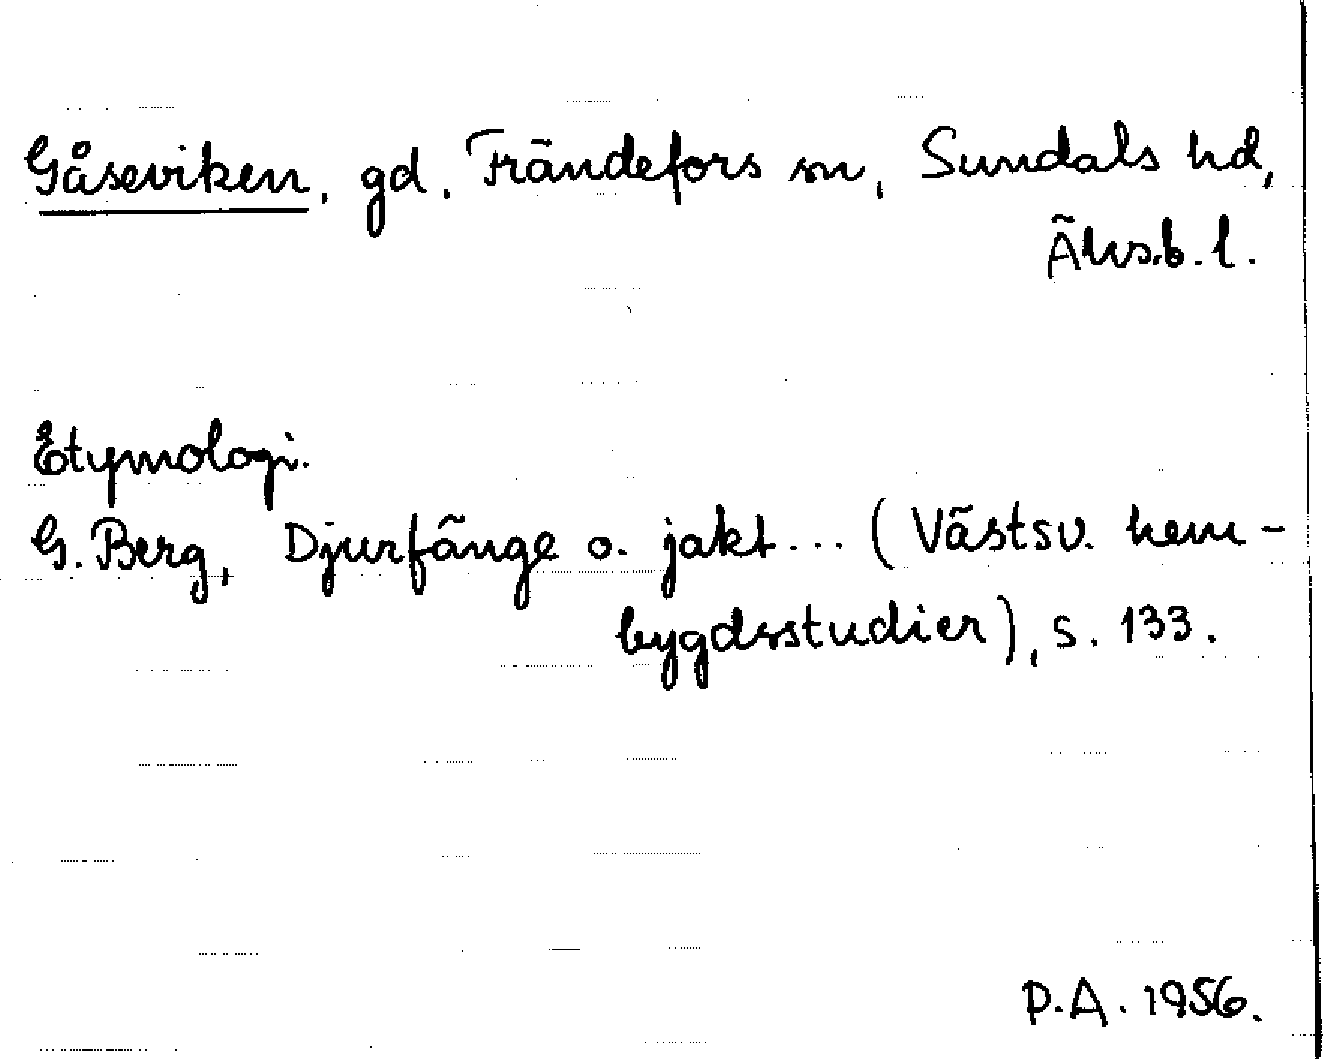 Gåseviken, gd, Frändefors sn, Sundals hd,
Älvsb. l.
Etymologi.
G. Berg, Djurfänge o. jakt... (Västsv. hem-
bygdsstudier), s. 133.
P.A. 1956.